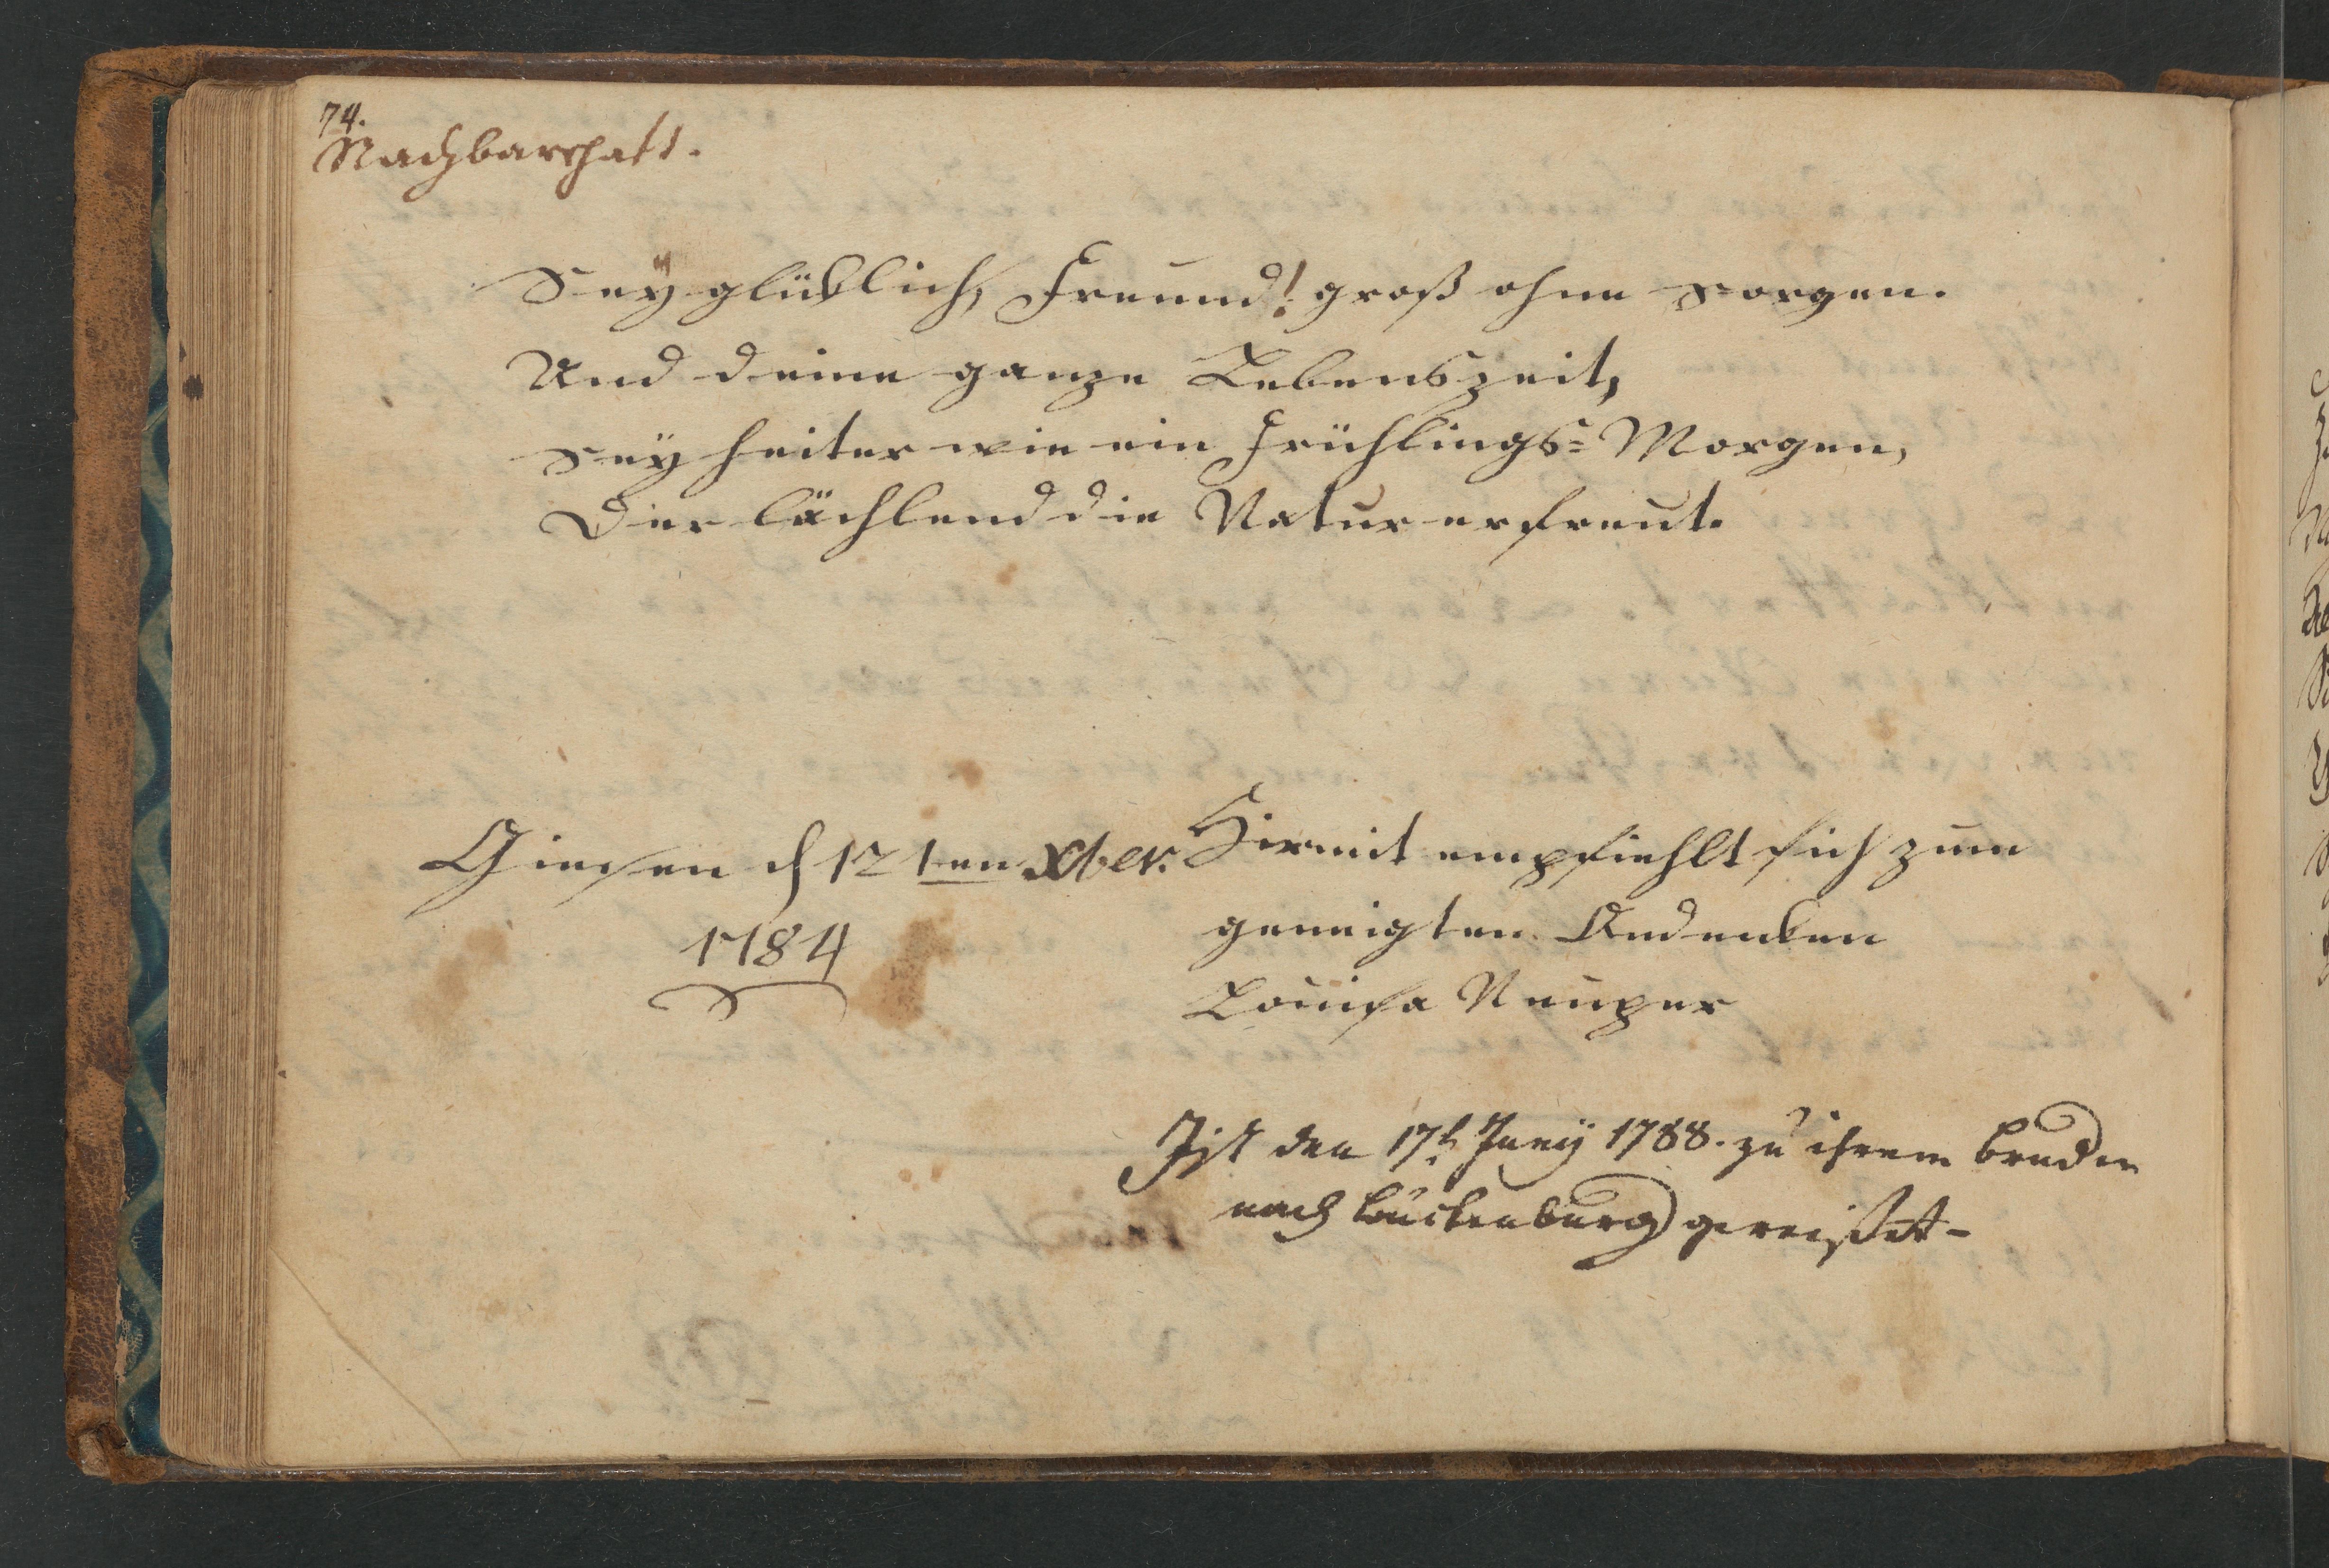 74.
Nachbarschaft.
Sey glüklich, Freund! groß ohne Sorgen.
Und deine ganze Lebenszeit,
Sey heiter wie ein Frühlings= Morgen,
Der lächlend die Natur erfreut.
Giesen d 12ten Xber.
1784
Hirmit empfiehlt sich zum
geneigten Andenken
Louisa Neuper
Ist den 17t Juny 1788. zu ihrem Bruder
nach Bückeburg gereißet-